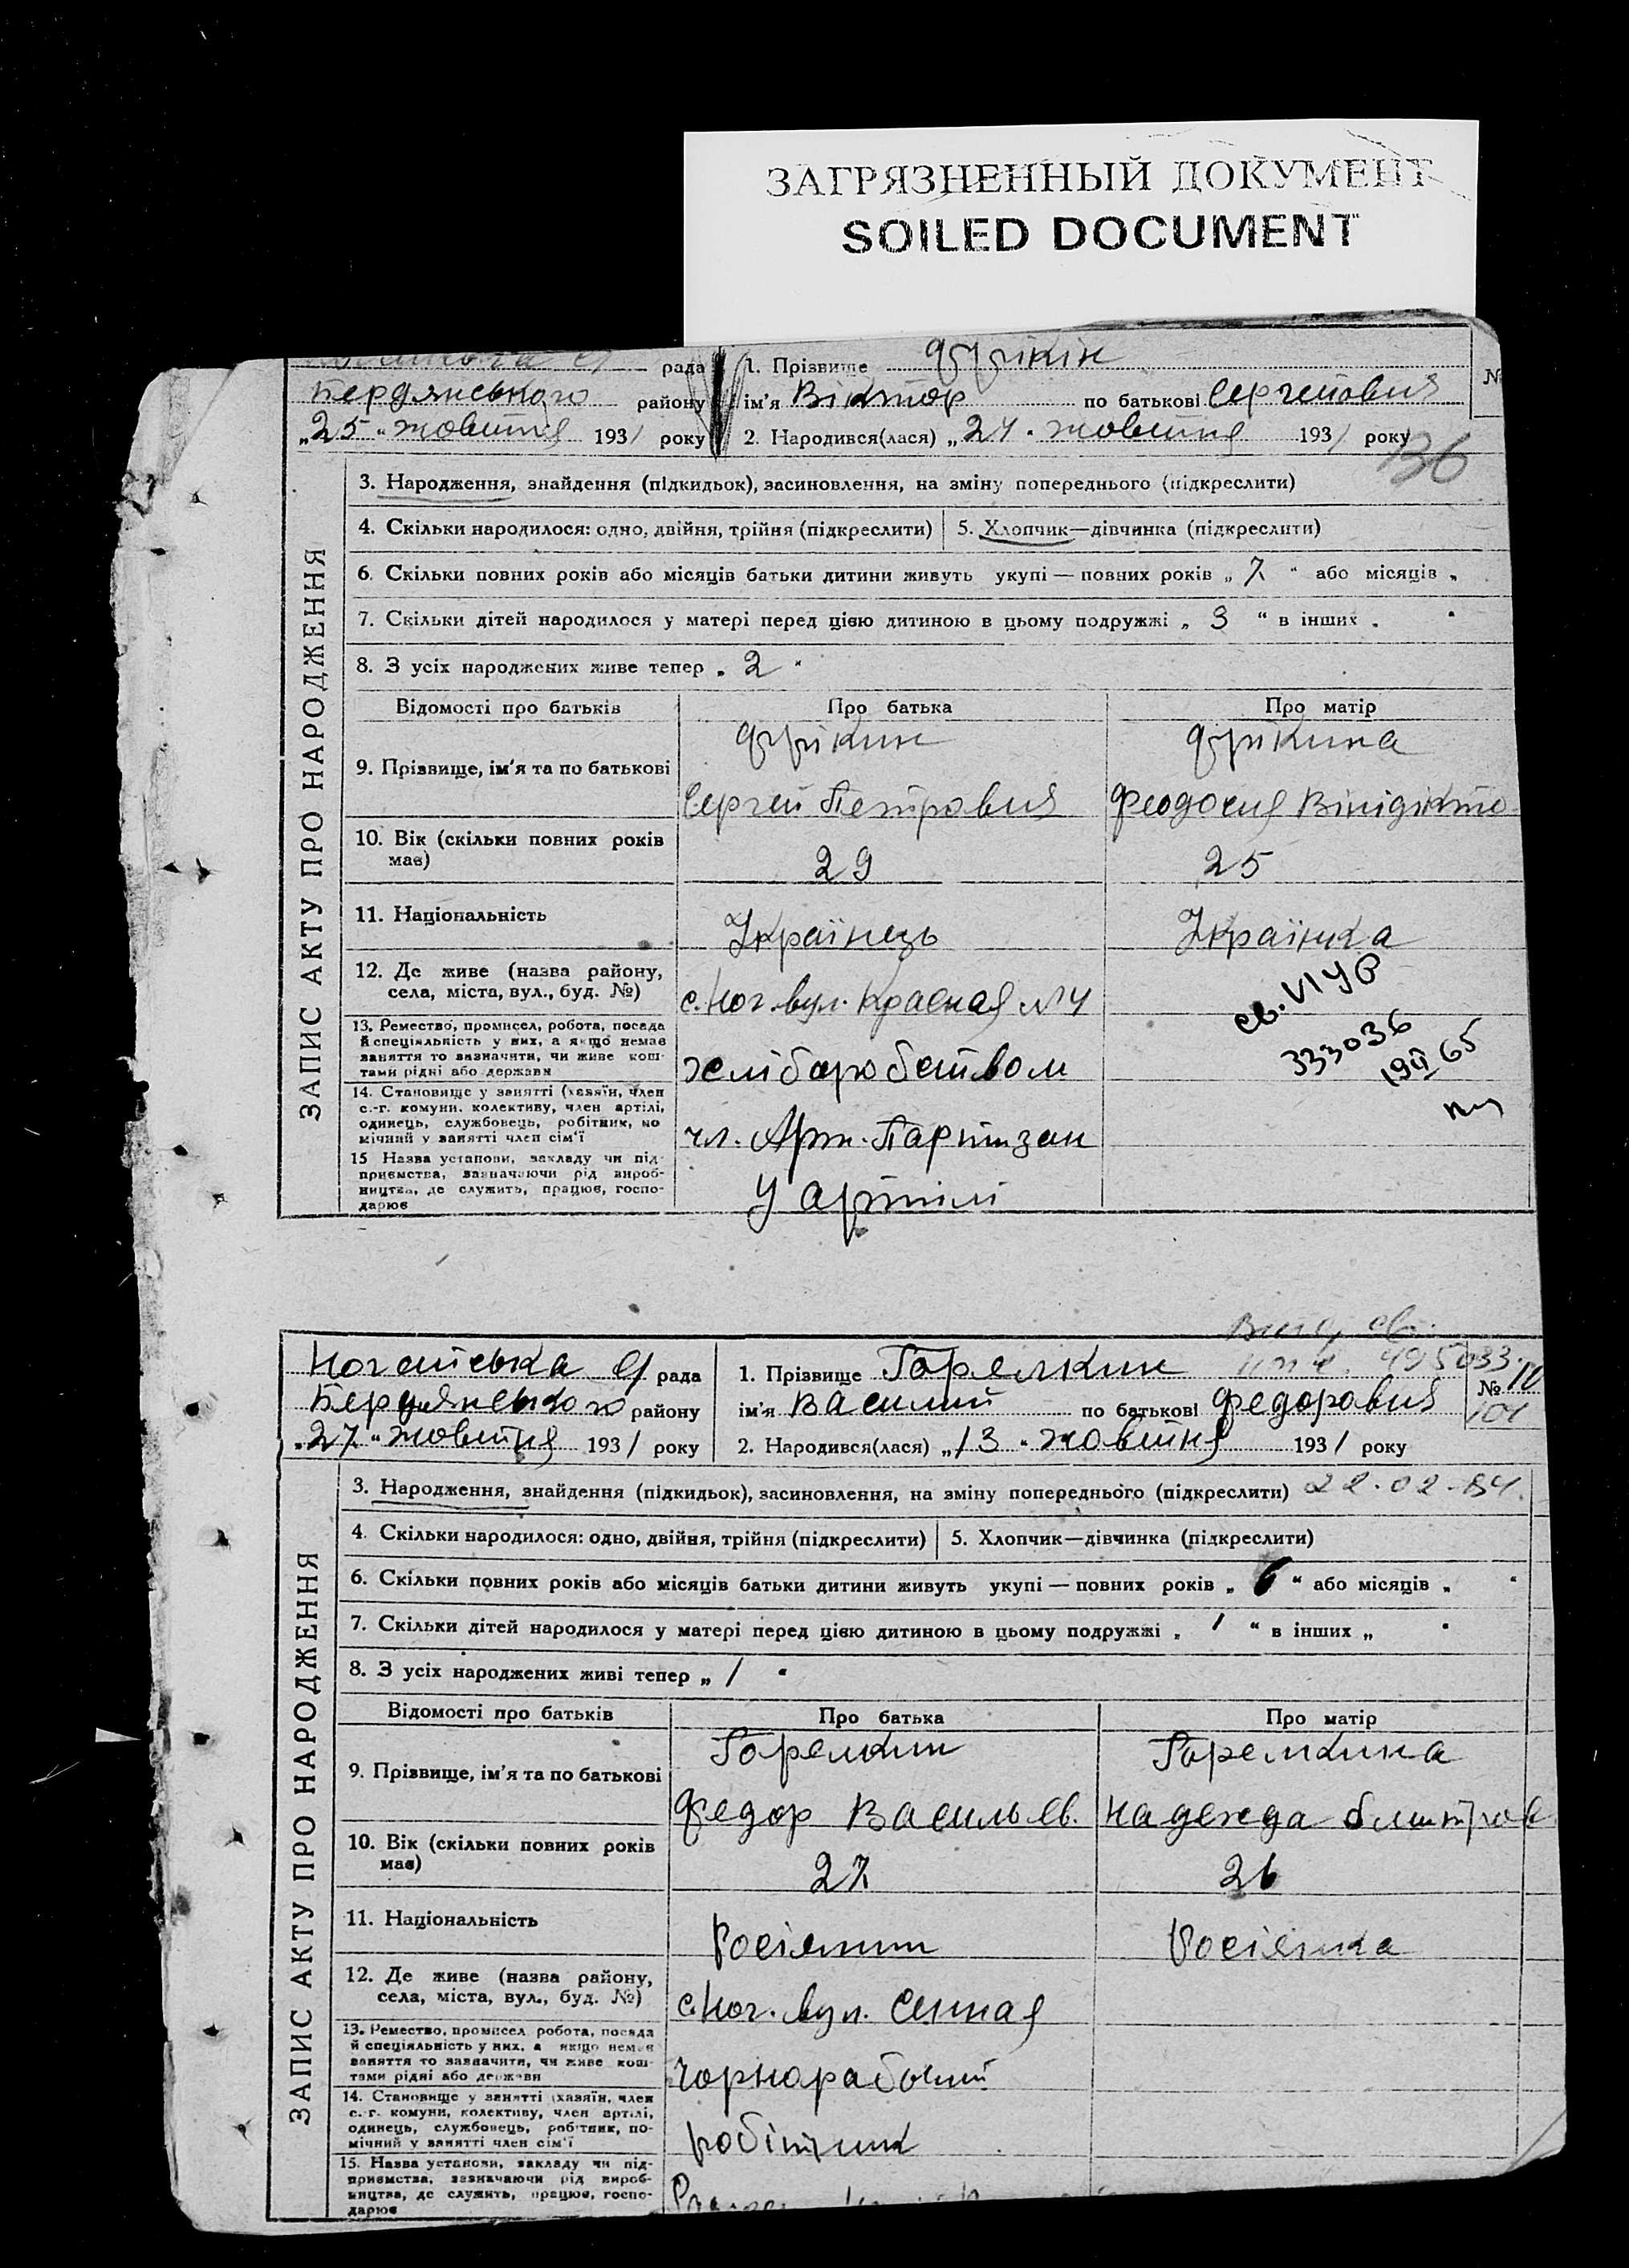 ЗАГРЯЗНЕННЫЙ ДОКУМЕНТ
SOILED DOCUMENT
рада
Бердянського району
„25“ жовтня 1931 року
1. Прізвище
№
ім'я Віктор по батькові Сергеїович
2. Народився(лася) „24“ жовтня 1931 року
36
ЗАПИС АКТУ ПРО НАРОДЖЕННЯ
3. Народження, знайдення (підкидьок), засиновлення, на зміну попереднього (підкреслити)
4. Скільки народилося: одно, двійня, трійня (підкреслити)
5. Хлопчик—дівчинка (підкреслити)
6. Скільки повних років або місяців батьки дитини живуть укупі — повних років „7“ або місяців „
7. Скільки дітей народилося у матері перед цією дитиною в цьому подружжі „3“ в інших „ “
8. З усіх народжених живе тепер „2“
Відомості про батьків Про батька Про матір
9. Прізвище, ім'я та по батькові
Сергей Петрович Феодосия Вінідікто
10. Вік (скільки повних років має)
29 25
11. Національність
Українець Українка
12. Де живе (назва району, села, міста, вул., буд. №)
с. Ног. вул. Красная №4
св. VIУБ
333036
13. Ремество, промисел, робота, посада й спеціяльність у них, а якщо немає заняття то зазначити, чи живе коштами рідні або держави
хліборобством
14. Становище у занятті (хазяїн, член с.-г. комуни, колективу, член артілі, одинець, службовець, робітник, помічний у занятті член сім'ї
чл. Арт. Партизан
15 Назва установи, закладу чи підприємства, зазначаючи рід виробництва, де служить, працює, господарює
У артілі
Ногайська рада
Бердянського району
„27“ жовтня 1931 року
1. Прізвище Горелкин
№ 101
ім'я Василий по батькові Федорович
2. Народився(лася) „13“ жовтня 1931 року
ЗАПИС АКТУ ПРО НАРОДЖЕННЯ
3. Народження, знайдення (підкидьок), засиновлення, на зміну попереднього (підкреслити) 22.02-84.
4. Скільки народилося: одно, двійня, трійня (підкреслити)
5. Хлопчик—дівчинка (підкреслити)
6. Скільки повних років або місяців батьки дитини живуть укупі — повних років „6“ або місяців „ “
7. Скільки дітей народилося у матері перед цією дитиною в цьому подружжі „1“ в інших „ “
8. З усіх народжених живі тепер „1“
Відомості про батьків Про батька Про матір
9. Прізвище, ім'я та по батькові
Горелкин Горелкина
Федор Васильев. Надежда
10. Вік (скільки повних років має)
27 26
11. Національність
Росіянин Росіянка
12. Де живе (назва району, села, міста, вул., буд. №)
с. Ног. вул. Сенная
13. Ремество, промисел, робота, посада й спеціяльність у них, а якщо немає заняття то зазначити, чи живе коштами рідні або держави
чорнорабочий
14. Становище у занятті (хазяїн, член с.-г. комуни, колективу, член артілі, одинець, службовець, робітник, помічний у занятті член сім'ї
робітник
15. Назва установи, закладу чи підприємства, зазначаючи рід виробництва, де служить, працює, господарює